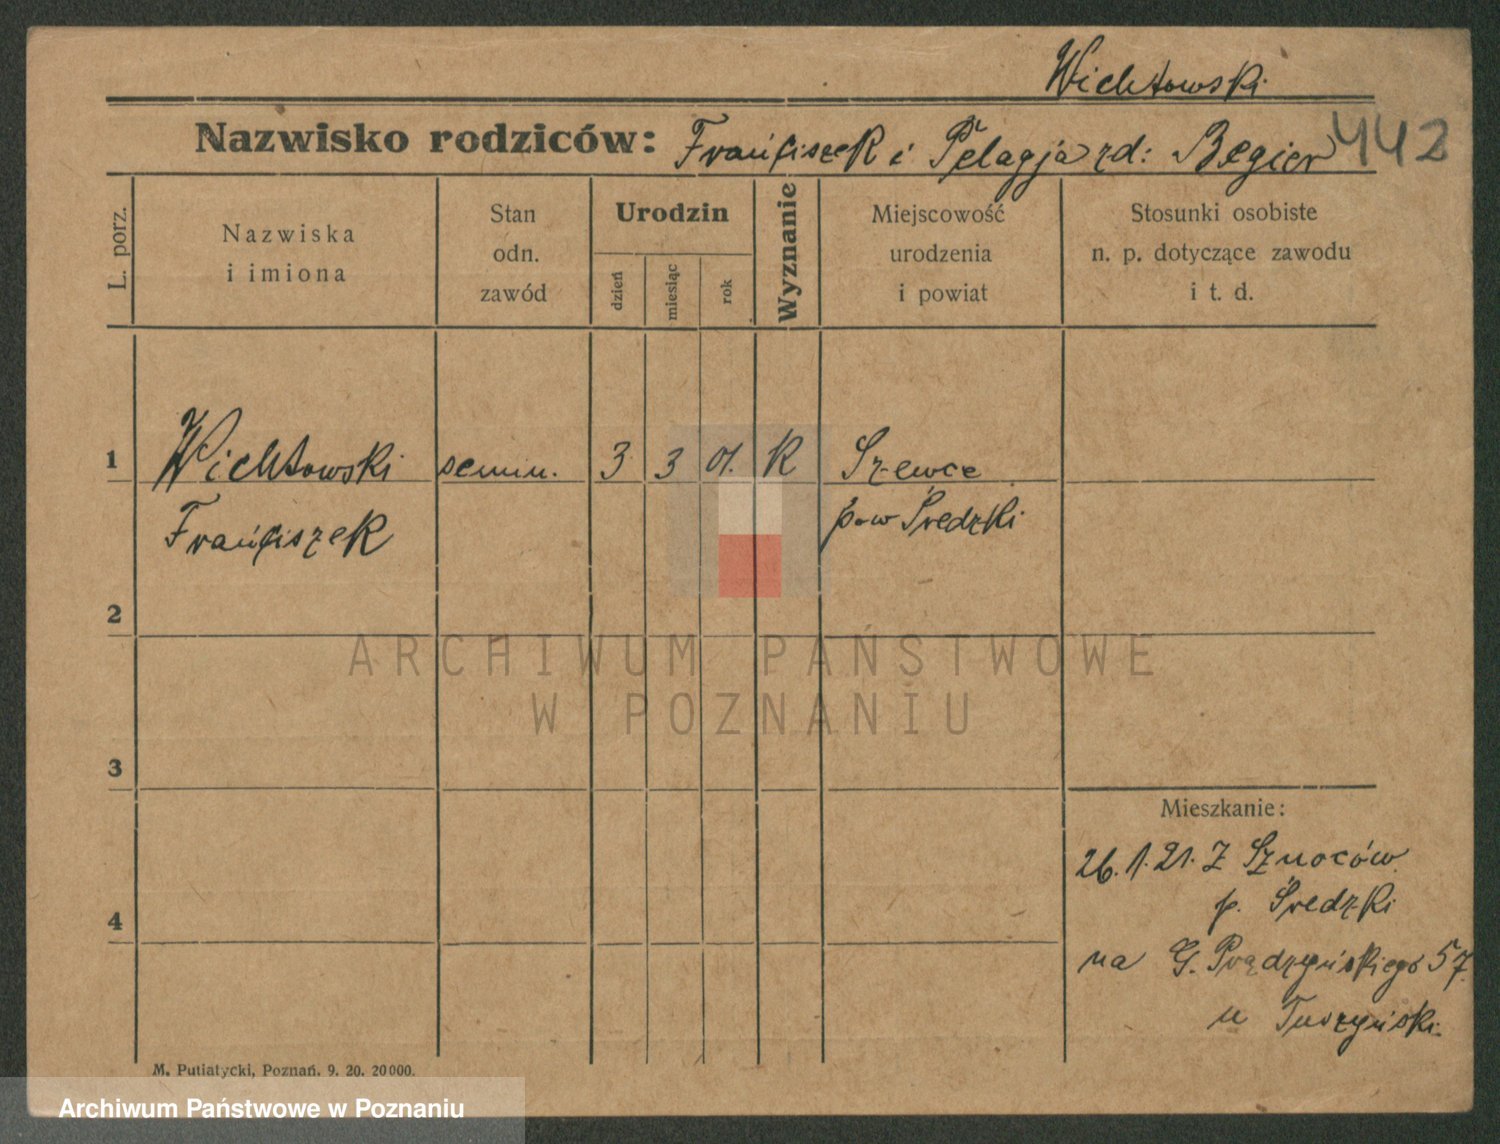 Wichtowski
Nazwisko rodziców: Franciszek i Pelagja zd: Begier 442
L. porz.
Nazwiska
i imiona
Stan
odn.
zawód
Urodzin
dzień
miesiąc
rok
Wyznanie
Miejscowość
urodzenia
i powiat
Stosunki osobiste
n. p. dotyczące zawodu
i t. d.
1 Wichtowski semin. 3 3 01. K Szewce
Franciszek pow Średzki
2
3
4
Mieszkanie:
26.1.21. Z
p. Średzki
na G. Prądzyńskiego 57.
u
M. Putiatycki, Poznań. 9. 20. 20000.
ARCHIWUM PAŃSTWOWE
W POZNANIU
Archiwum Państwowe w Poznaniu